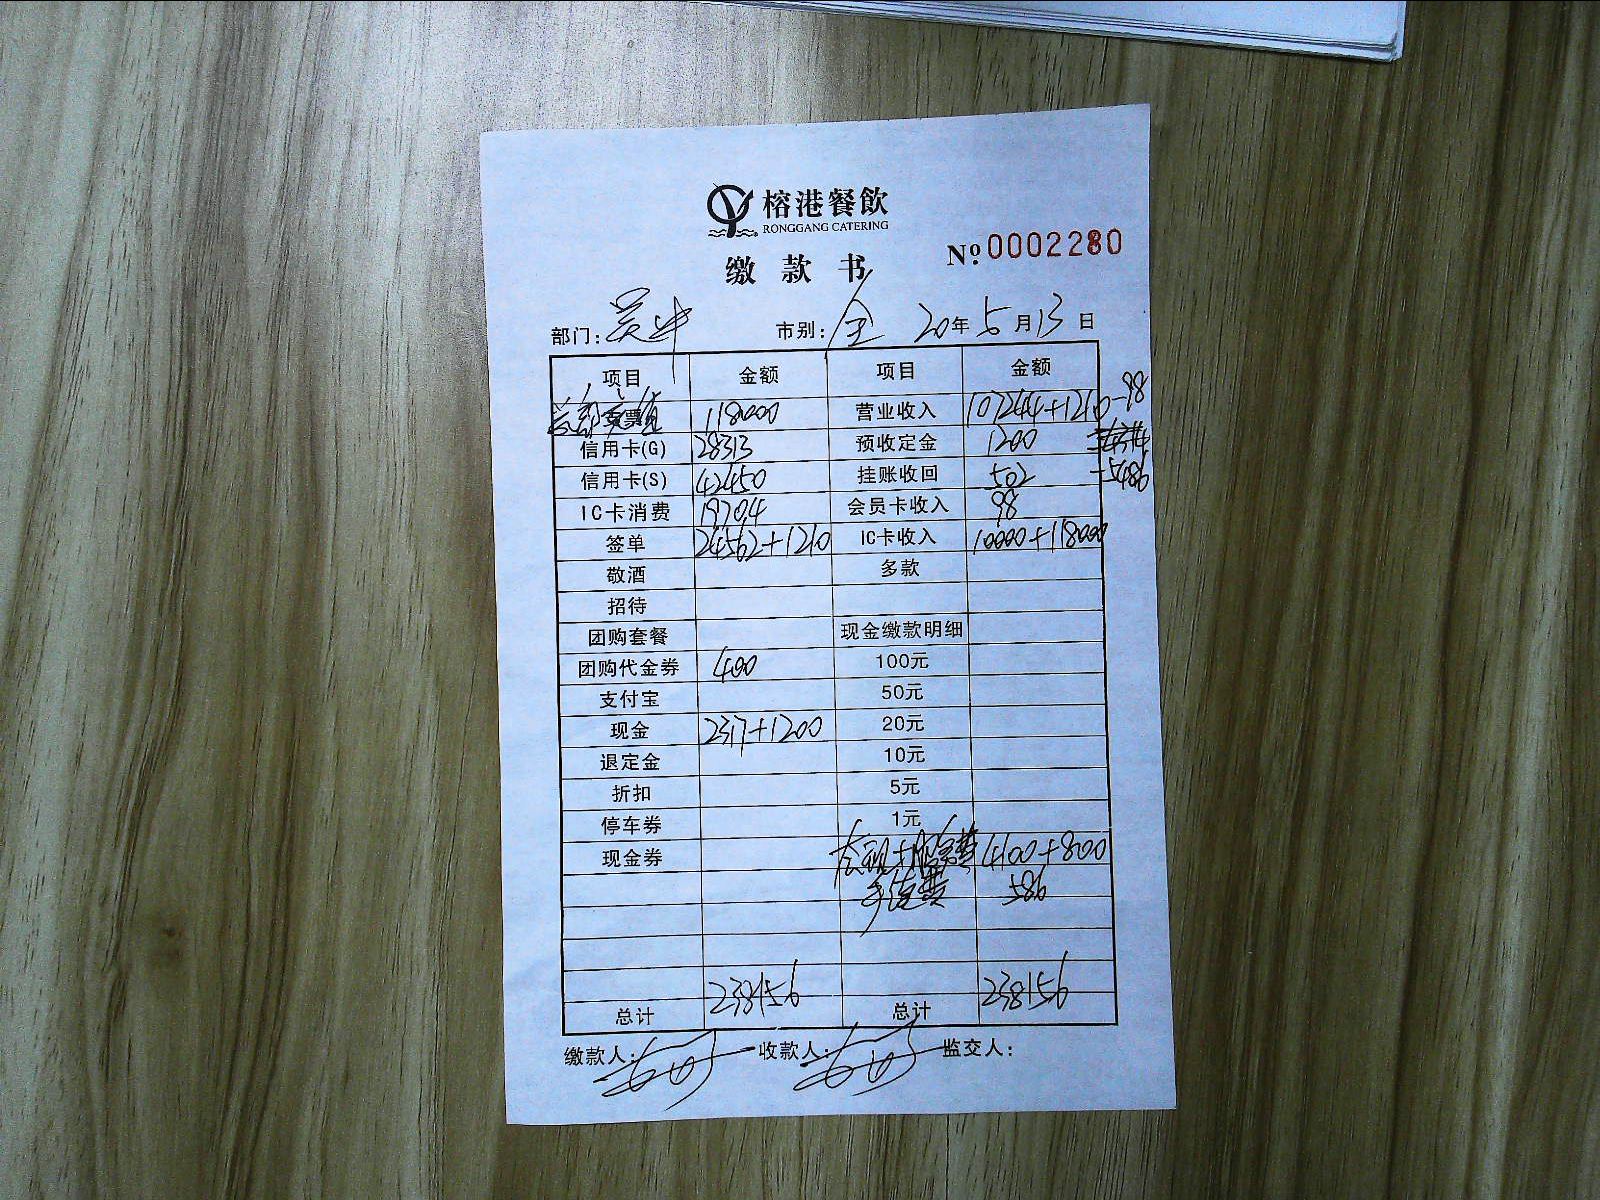 榕港餐飲
RONGGANG CATERING
№ 0002280
缴款书
部门: 市别: 全 20年 5月 13日
项目 金额 项目 金额
票 118000 营业收入 107244+1210-98
信用卡(G) 28313 预收定金 1200
信用卡(S) 42450 挂账收回 502 -5486
IC卡消费 19704 会员卡收入 98
签单 24562+1210 IC卡收入 10000+118000
敬酒 多款
招待
团购套餐 现金缴款明细
团购代金券 400 100元
支付宝 50元
现金 2317+1200 20元
退定金 10元
折扣 5元
停车券 1元
现金券 4100+800
手续费 586
总计 238156 总计 238156
缴款人: 收款人: 监交人: